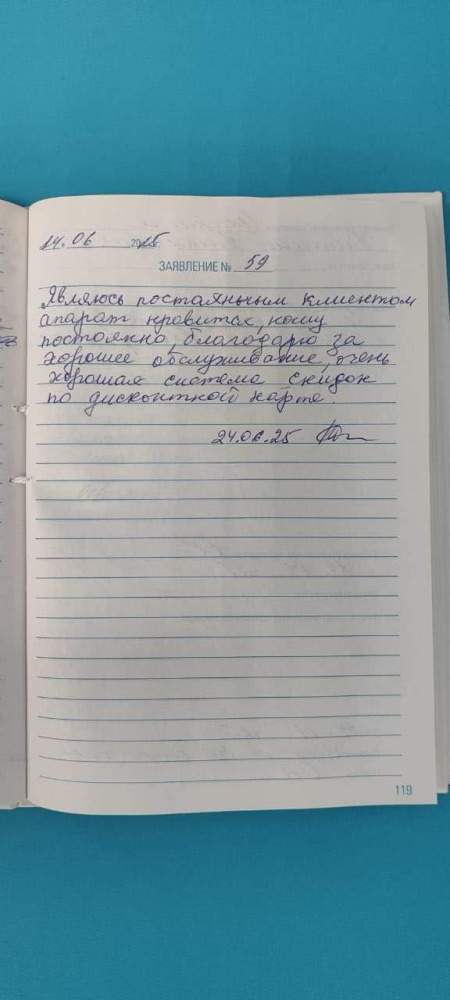 24.06 2025
ЗАЯВЛЕНИЕ № 59
Являюсь постаяньим клиентом
апарат кровитах, ношу
постоянно, благодарю за
хорошее обслуживание, очень
хорошая система скидок
по дисконтной карте
24.06.25
119